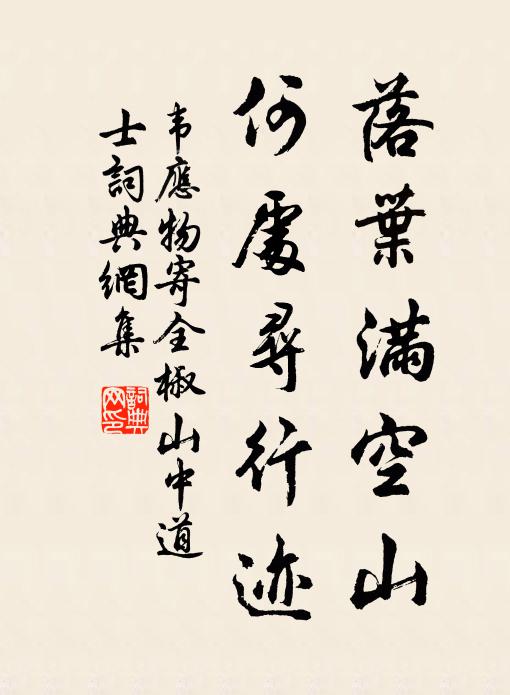 落葉滿空山
何處尋行迹
韦應物寄全椒山中道
士詞典網集
詞典
网印